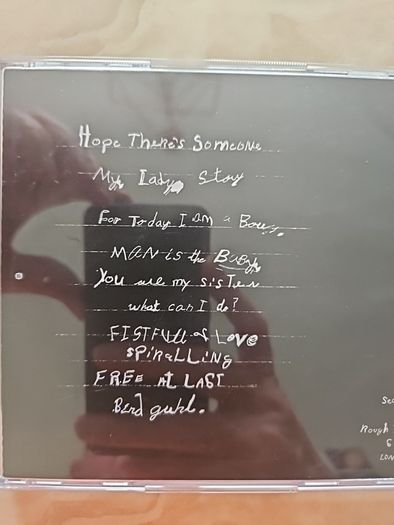 Hope There's Someone
My Lady Story
For Today I am a Boy
MAN is the Baby
You are my sisTer
what can I do?
FISTFULL of LOVE
SPiRaLLiNg
FREE AT LAST
Bird guhl.
Rough
6
LON